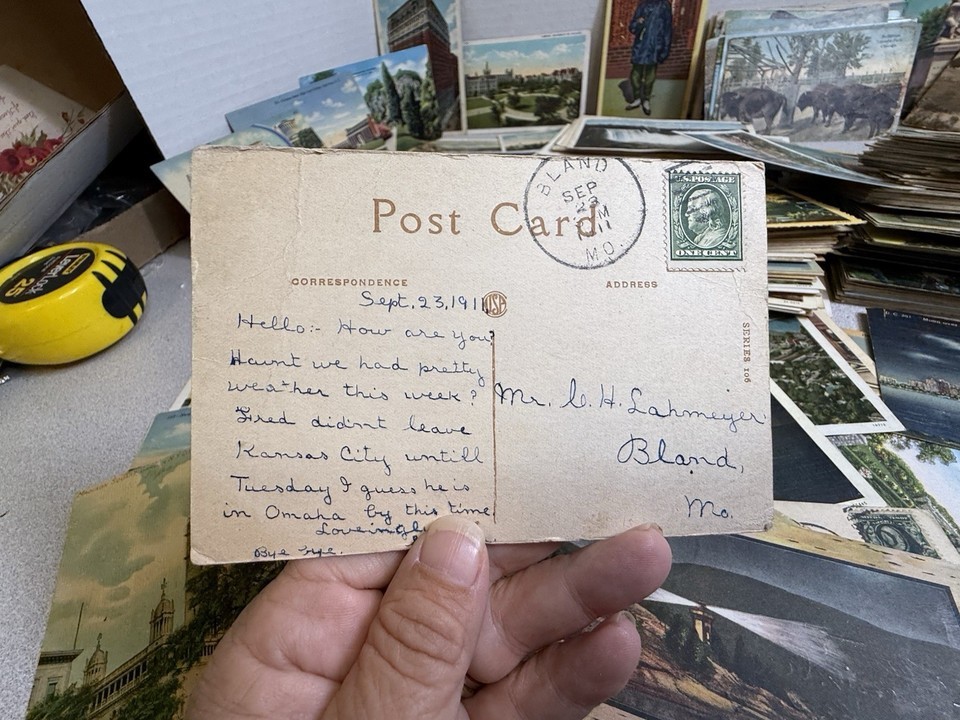 BLAND
SEP
23
M
1911
MO.
U.S. POSTAGE
ONE CENT
Post Card
CORRESPONDENCE
ADDRESS
USA
SERIES 106
Sept, 23, 1911
Hello:- How are you
Haunt we had pretty
weather this week?
Fred didnt leave
Kansas City untill
Tuesday I guess he is
in Omaha by this time
Loveingly
Bye bye.
Mr. C. H. Lahmeyer
Bland,
Mo.
25